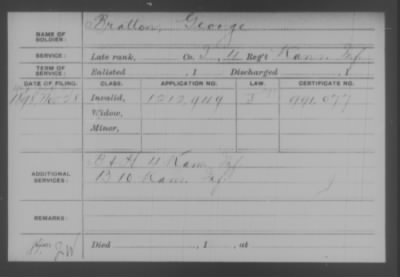 NAME OF SOLDIER: Bratton, George
SERVICE: Late rank, Co. I, 11 Reg't Kans. Inf.
TERM OF SERVICE: Enlisted , 1 Discharged , 1
DATE OF FILING. CLASS. APPLICATION NO. LAW. CERTIFICATE NO.
1898 Nov 28 Invalid, 1212949 991,077
Widow,
Minor,
ADDITIONAL SERVICES: & H 11 Kans. Inf.
B 10 Kans. Inf
REMARKS:
Died , 1 , at